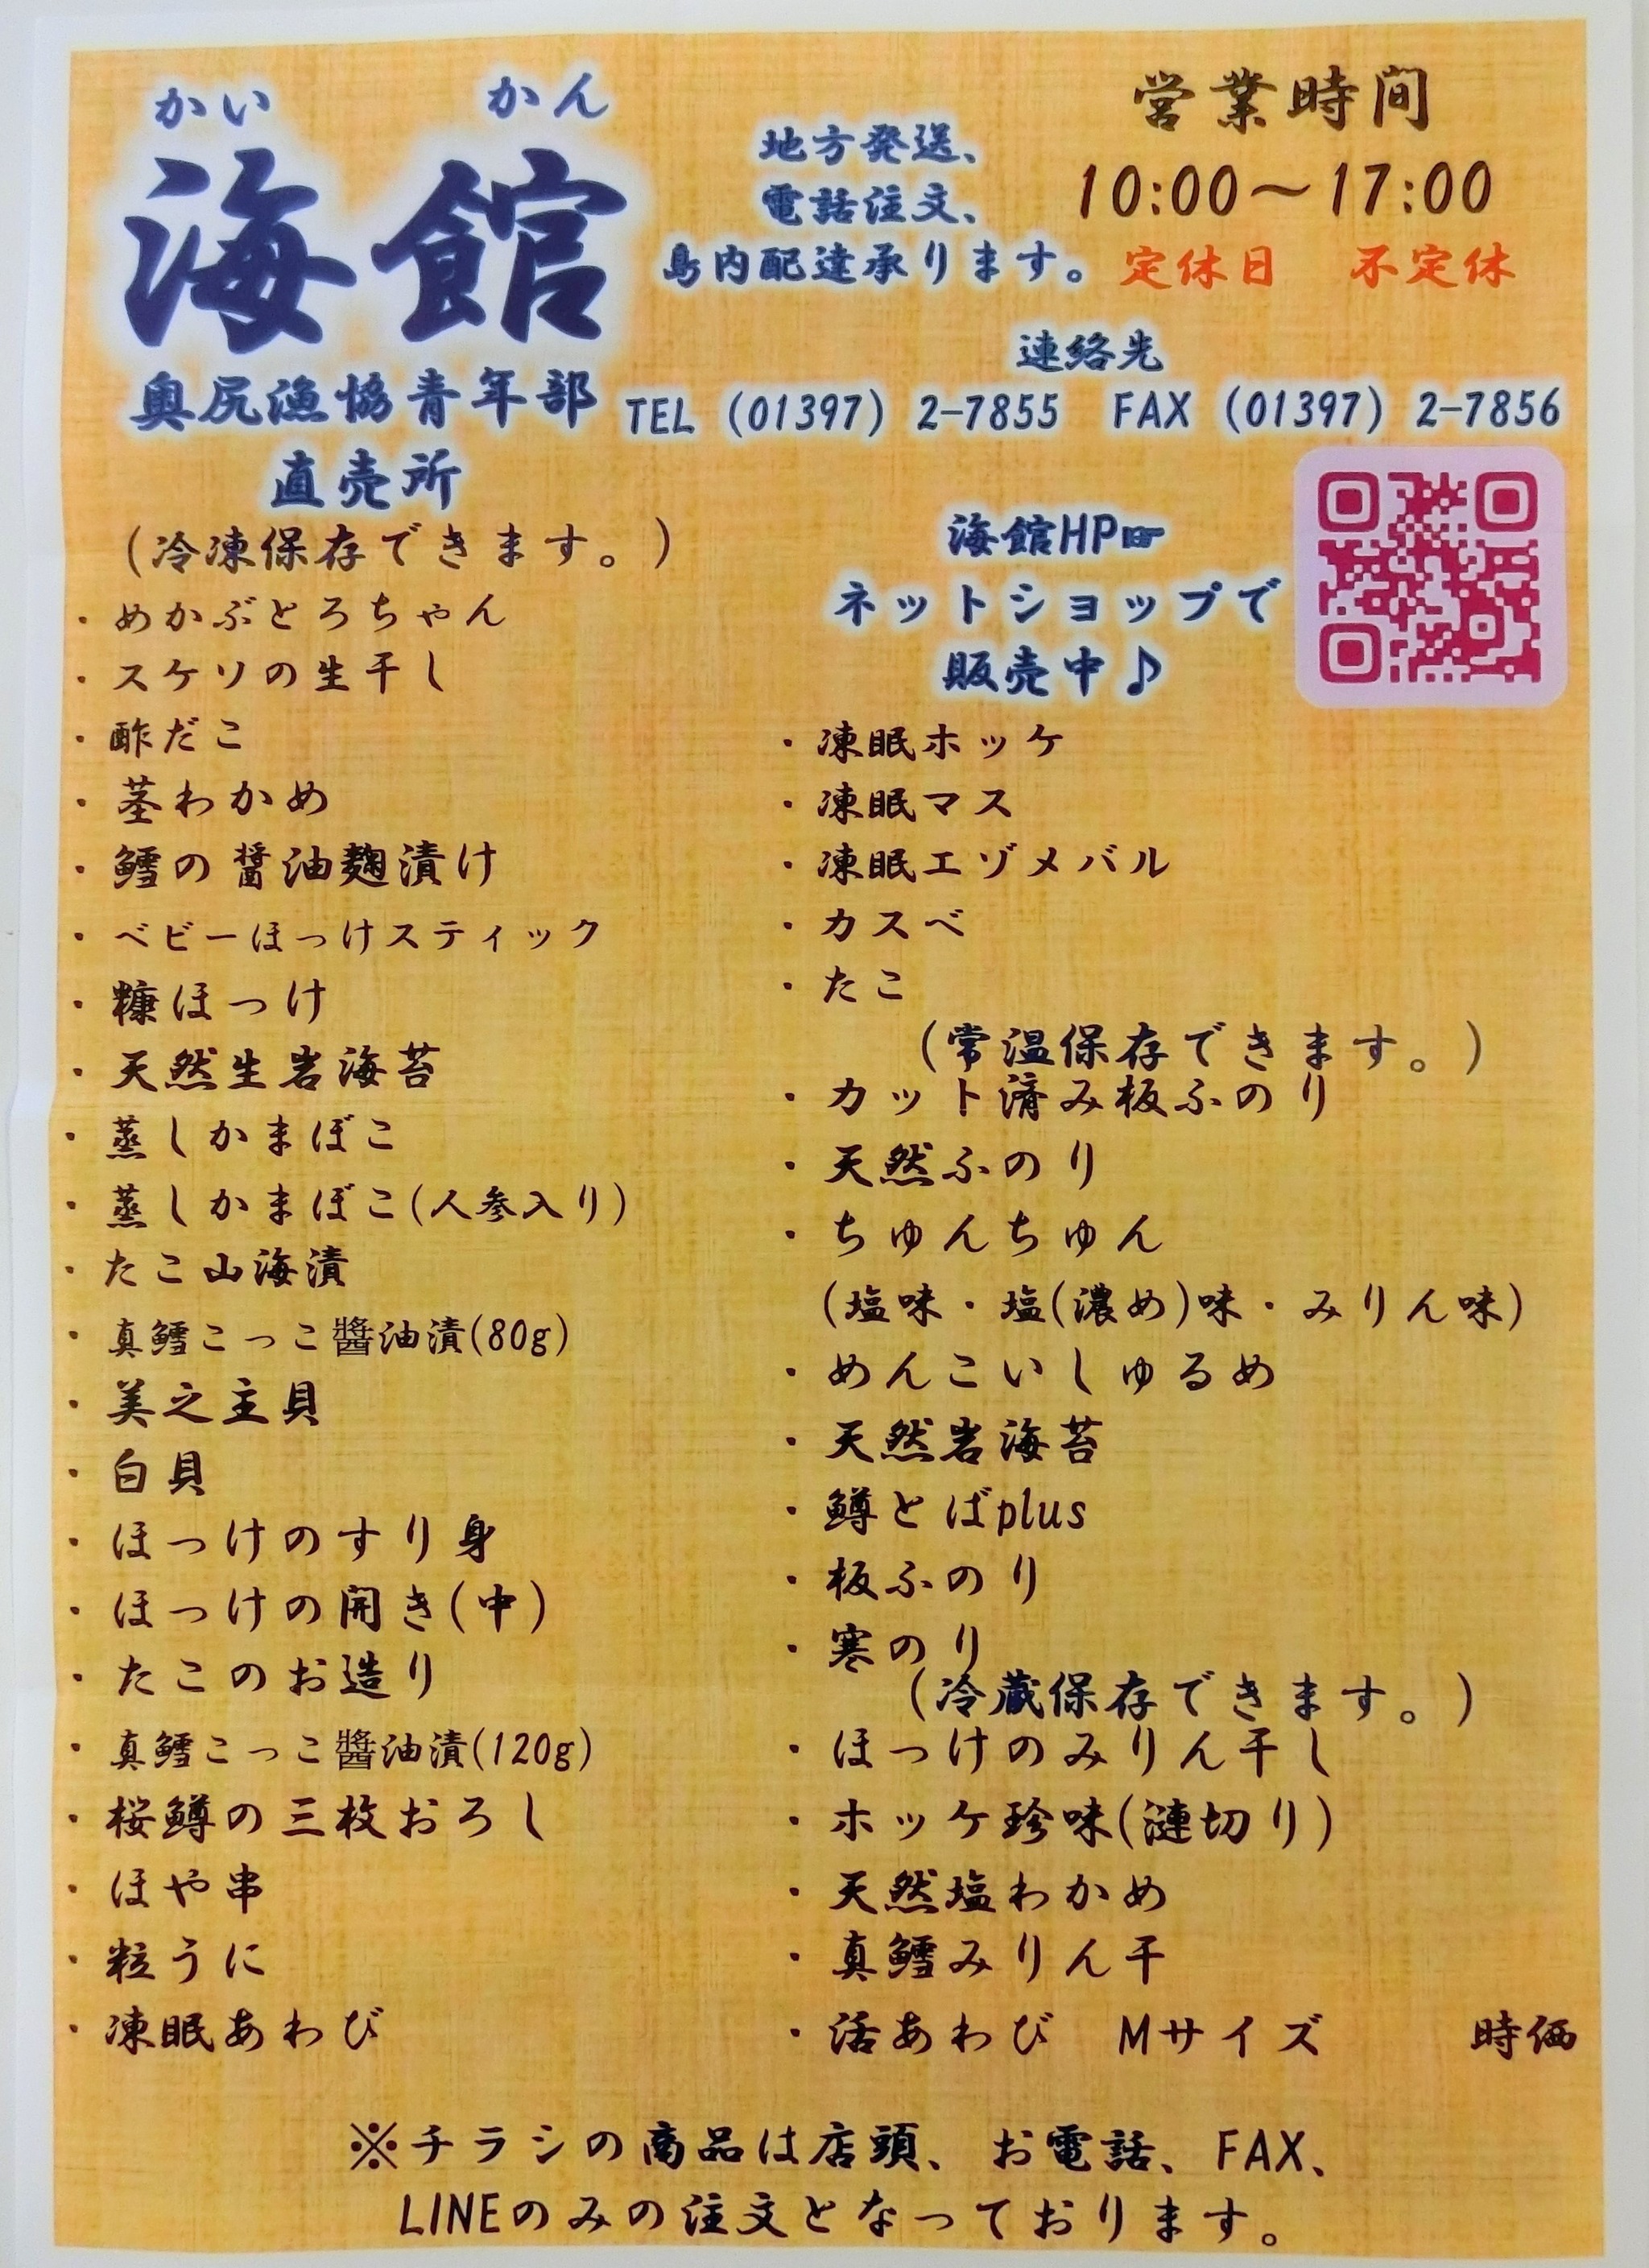 かい かん
海館
奥尻漁協青年部
直売所
地方発送、
電話注文、
島内配達承ります。
営業時間
10:00～17:00
定休日 不定休
連絡先
TEL (01397) 2-7855 FAX (01397) 2-7856
海館HP☞
ネットショップで
販売中♪
(冷凍保存できます。)
・めかぶとろちゃん
・スケソの生干し
・酢だこ
・茎わかめ
・鱈の醤油麹漬け
・ベビーほっけスティック
・糠ほっけ
・天然生岩海苔
・蒸しかまぼこ
・蒸しかまぼこ(人参入り)
・たこ山海漬
・真鱈こっこ醬油漬(80g)
・美之主貝
・白貝
・ほっけのすり身
・ほっけの開き(中)
・たこのお造り
・真鱈こっこ醬油漬(120g)
・桜鱒の三枚おろし
・ほや串
・粒うに
・凍眠あわび
・凍眠ホッケ
・凍眠マス
・凍眠エゾメバル
・カスベ
・たこ
(常温保存できます。)
・カット済み板ふのり
・天然ふのり
・ちゅんちゅん
(塩味・塩(濃め)味・みりん味)
・めんこいしゅるめ
・天然岩海苔
・鱒とばplus
・板ふのり
・寒のり
(冷蔵保存できます。)
・ほっけのみりん干し
・ホッケ珍味(漣切り)
・天然塩わかめ
・真鱈みりん干
・活あわび Mサイズ 時価
※チラシの商品は店頭、お電話、FAX、
LINEのみの注文となっております。